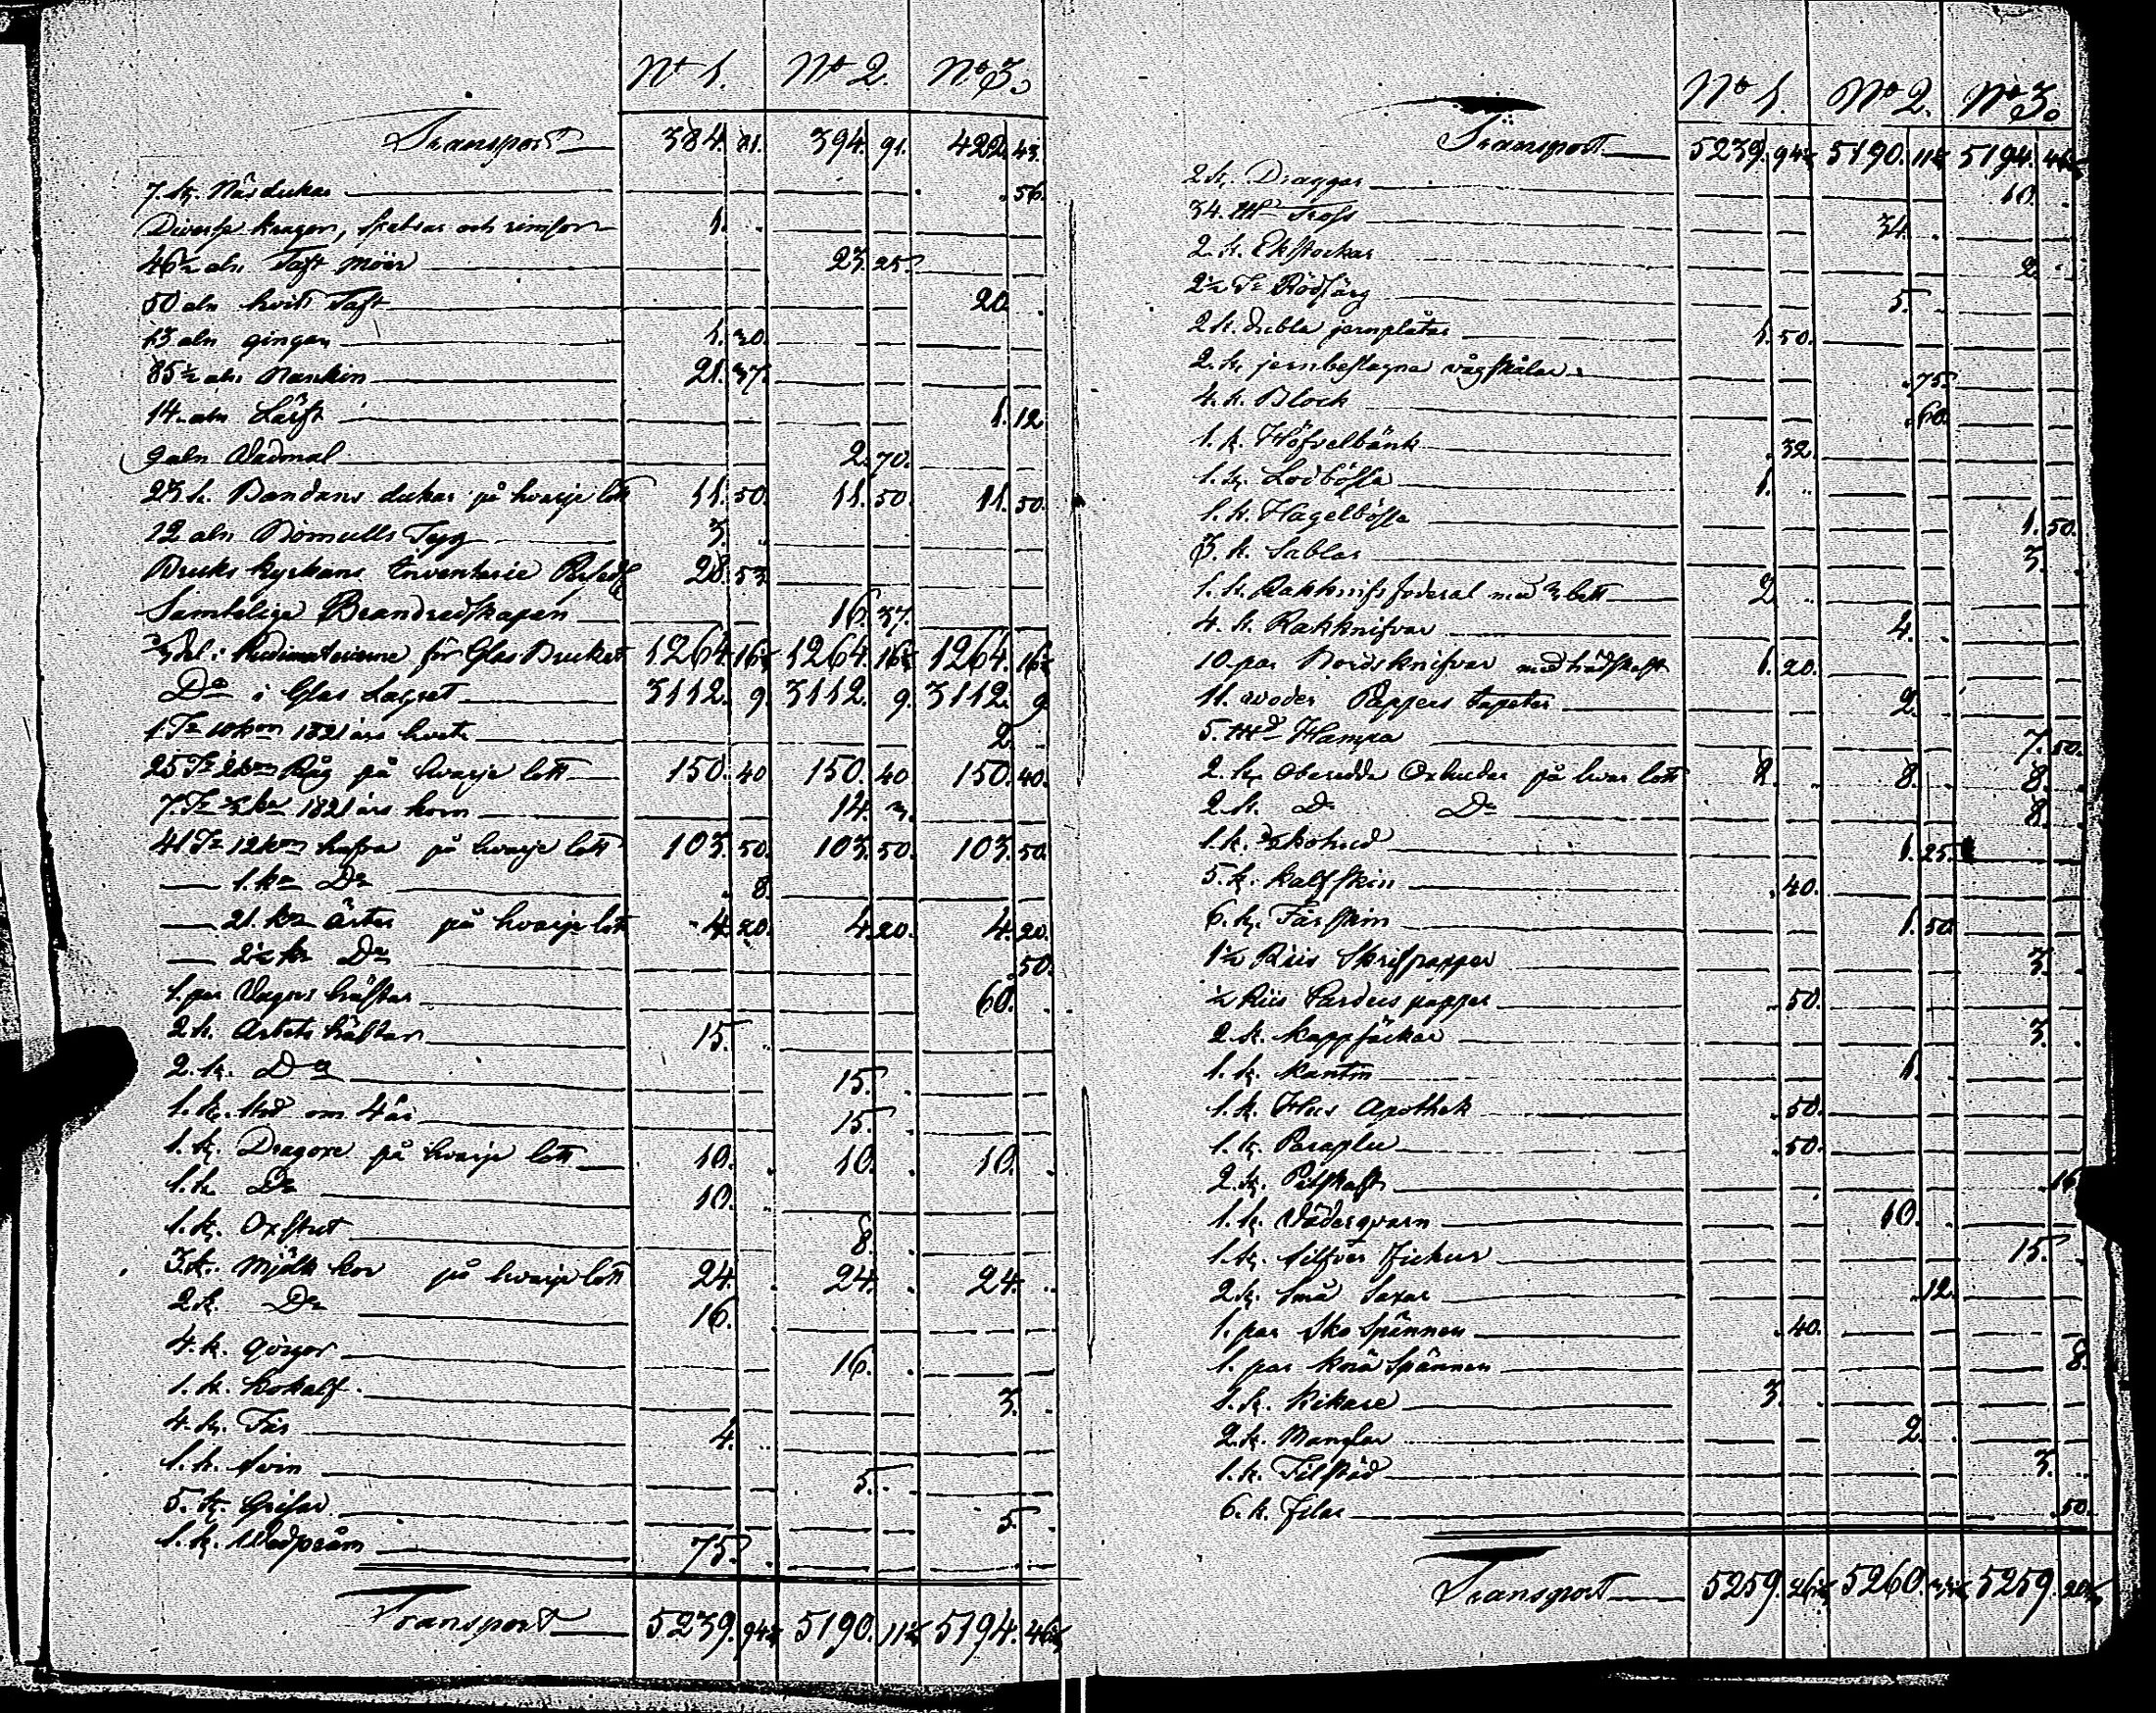 No 1. No 2. No 3.
Transport 384. 81. 394. 91. 422. 43.
7. st. Näsdukar . 56.
Diverse kragor, spetsar och remsor 1. .
46½ aln Taft Moër 23. 25.
50 aln hvitt Taft 20. .
13 aln gingan 1. 30.
85½ aln Nankin 21. 37.
14. aln Lärft 1. 12
9 aln Vadmal 2. 70.
23 st. Bandans dukar på hvarje lott 11. 50. 11. 50. 11. 50.
12 aln Bomulls Tyg 3. .
Bruks kyrkans Inventarie 28. 53.
Samtelige Brandredskapen 16. 37.
⅓ del i Rudimaterierne för Glas Bruket 1264. 16⅔ 1264. 16⅔ 1264. 16⅔
Do i Glas Lagret 3112. 9. 3112. 9. 3112. 9.
1. Tr 10 kpr 1821 års hvete 2. .
25 Tr 2 kpr Råg på hvarje lott 150. 40 150. 40 150. 40.
7. Tr ½ kpr 1821 års korn 14. 3.
41 Tr 12 kpr hafra på hvarje lott 103. 50. 103. 50. 103. 50.
— 1. kpr Do . 8.
— 21. kpr ärter på hvarje lott 4. 20. 4. 20. 4. 20.
— 2½ kpr Do . 50.
1. par Vagns hästar 60. .
2. st. Arbets hästar 15. .
2. st. Do 15. .
1. st. Sto om 4 år 15. .
1. st. Dragoxe på hvarje lott 10. . 10. . 10. .
1. st. Do 10. .
1. st. Oxstut 8. .
3. st. Mjölk kor på hvarje lott 24. . 24. . 24. .
2. st. Do 16. .
4. st. qvigor 16. .
1. st. kokalf 3. .
4. st. Får 4. .
1. st. Svin 5. .
5. st. Grisar 5. .
1. st. Vedpråm 75. .
Transport 5239. 94⅔ 5190. 11⅔ 5194. 46⅔
No 1. No 2. No 3.
Transport 5239. 94⅔ 5190. 11⅔ 5194. 46⅔
2 st. Draggar 10. .
34. Tross 34. .
2. st. Ekstockar 2. .
2½ Tr Rödfärg 5. .
2 st. dubla jernplåtar 1. 50.
2. st. jernbeslagna vågskålar . 75.
4. st. Block . 60.
1. st. Höfvelbänk . 32.
1. st. Lodbössa 1. .
1. st. Hagelbössa 1. 50.
3. st. Sablar 3. .
1. st. Rakknifs foderal med 2 bett 2. .
4. st. Rakknifvar 4. .
10. par Bordsknifvar med trädskaft 1. 20.
11. Pappers tapeter 2. .
5. Hampa 7. 50.
2. st. Oberedde Oxhudar på hvar lott 8. . 8. . 8. .
2. st. Do Do 8. .
1. st. ½ kohud 1. 25.
5. st. kalfskin . 40.
6. st. Fårskin 1. 50
1½ Riis Skrifpapper 3. .
½ Riis Cardus papper . 50.
2. st. kappsäckar 3. .
1. st. kantin 1. .
1. st. Hus Apothek . 50.
1. st. Paraplu . 50.
2. st. Pitskaft . 16
1. st. Väderqvarn 10. .
1. st. Silfver fickur 15. .
2. st. små Saxar . 12.
1. par sko Spännen . 40.
1. par knä Spännen . 8.
1. st. kikare 3. .
2. st. Manglar 2. .
1. st. Filstäd 3. .
6. st. Filar . 50.
Transport 5259. 26⅔ 5260. 33⅔ 5259. 20⅔